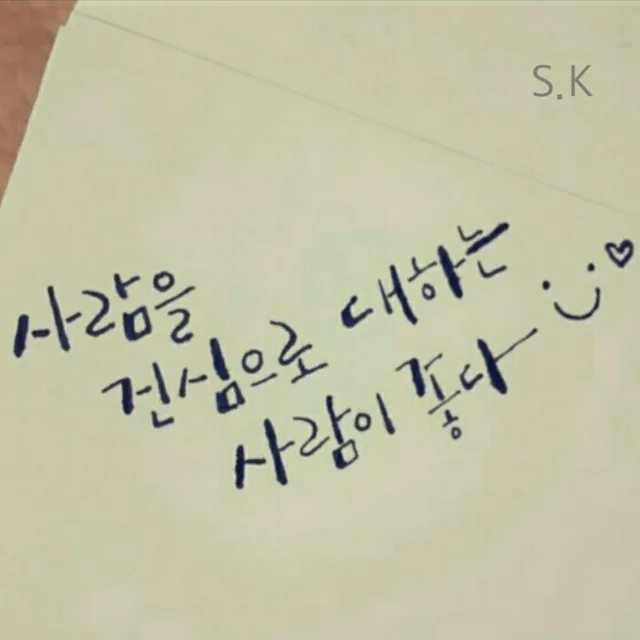 S.K
사람을
진심으로 대하는
사람이 좋다